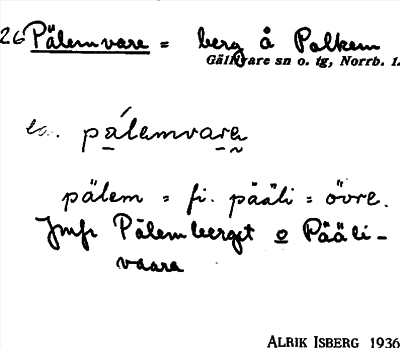 26 Pälemvare = berg å Palkem
Gällivare sn o. tg, Norrb. l.
pálemvara
pälem = fi. pääli = övre.
Jmfr Pälemberget o Pääli-
vaara
ALRIK ISBERG 1936